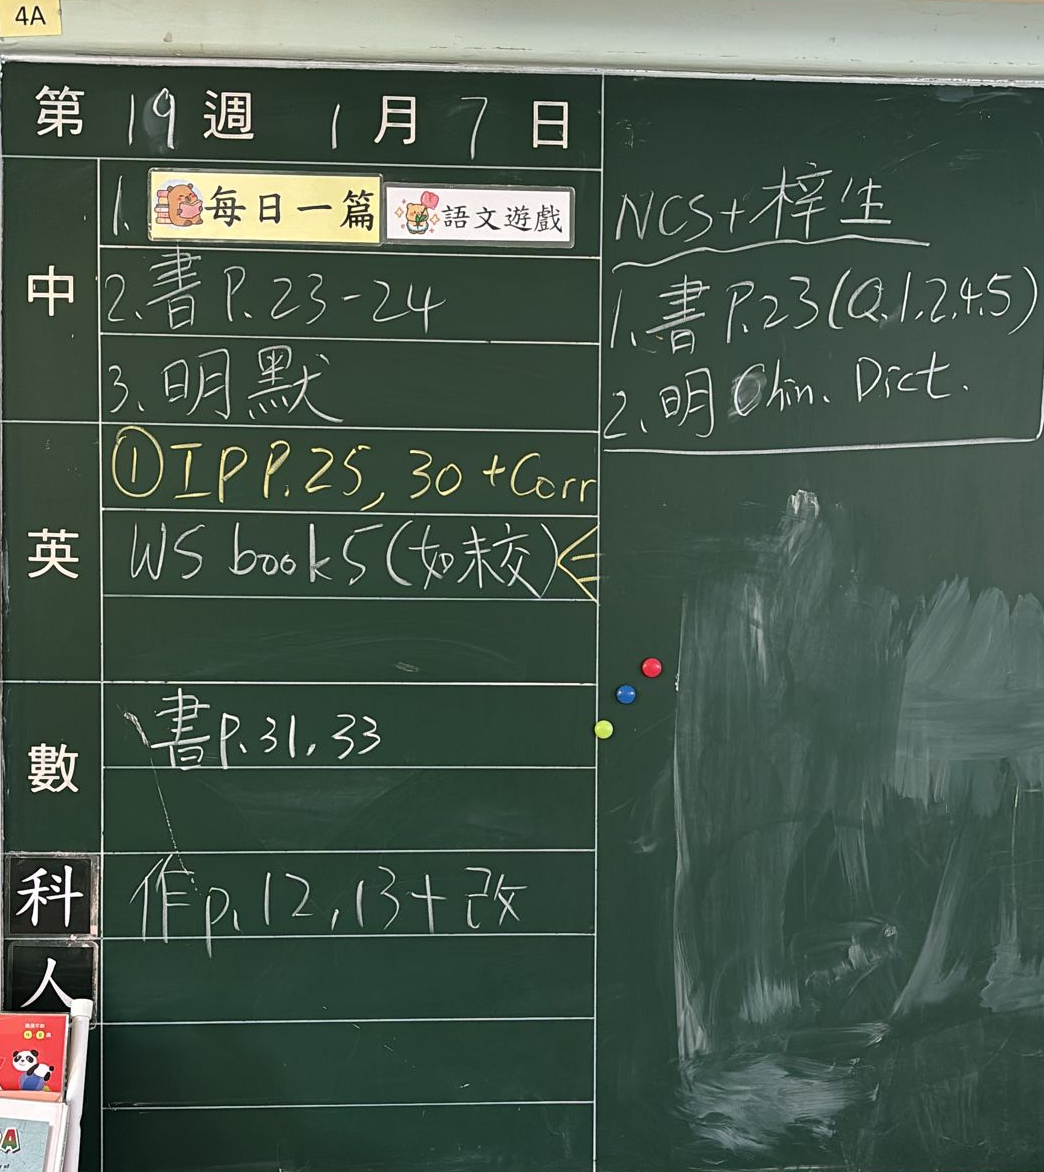 4A
第19週 1月7日
中
1. 每日一篇 語文遊戲
2. 書 P.23-24
3. 明默
英
①IP P.25, 30 +Corr
WS book 5 (如未交)
數
書 p.31, 33
科
作 p.12, 13+改
人
NCS+梓生
1. 書 P.23 (Q.1.2.4.5)
2. 明 Chin. Dict.